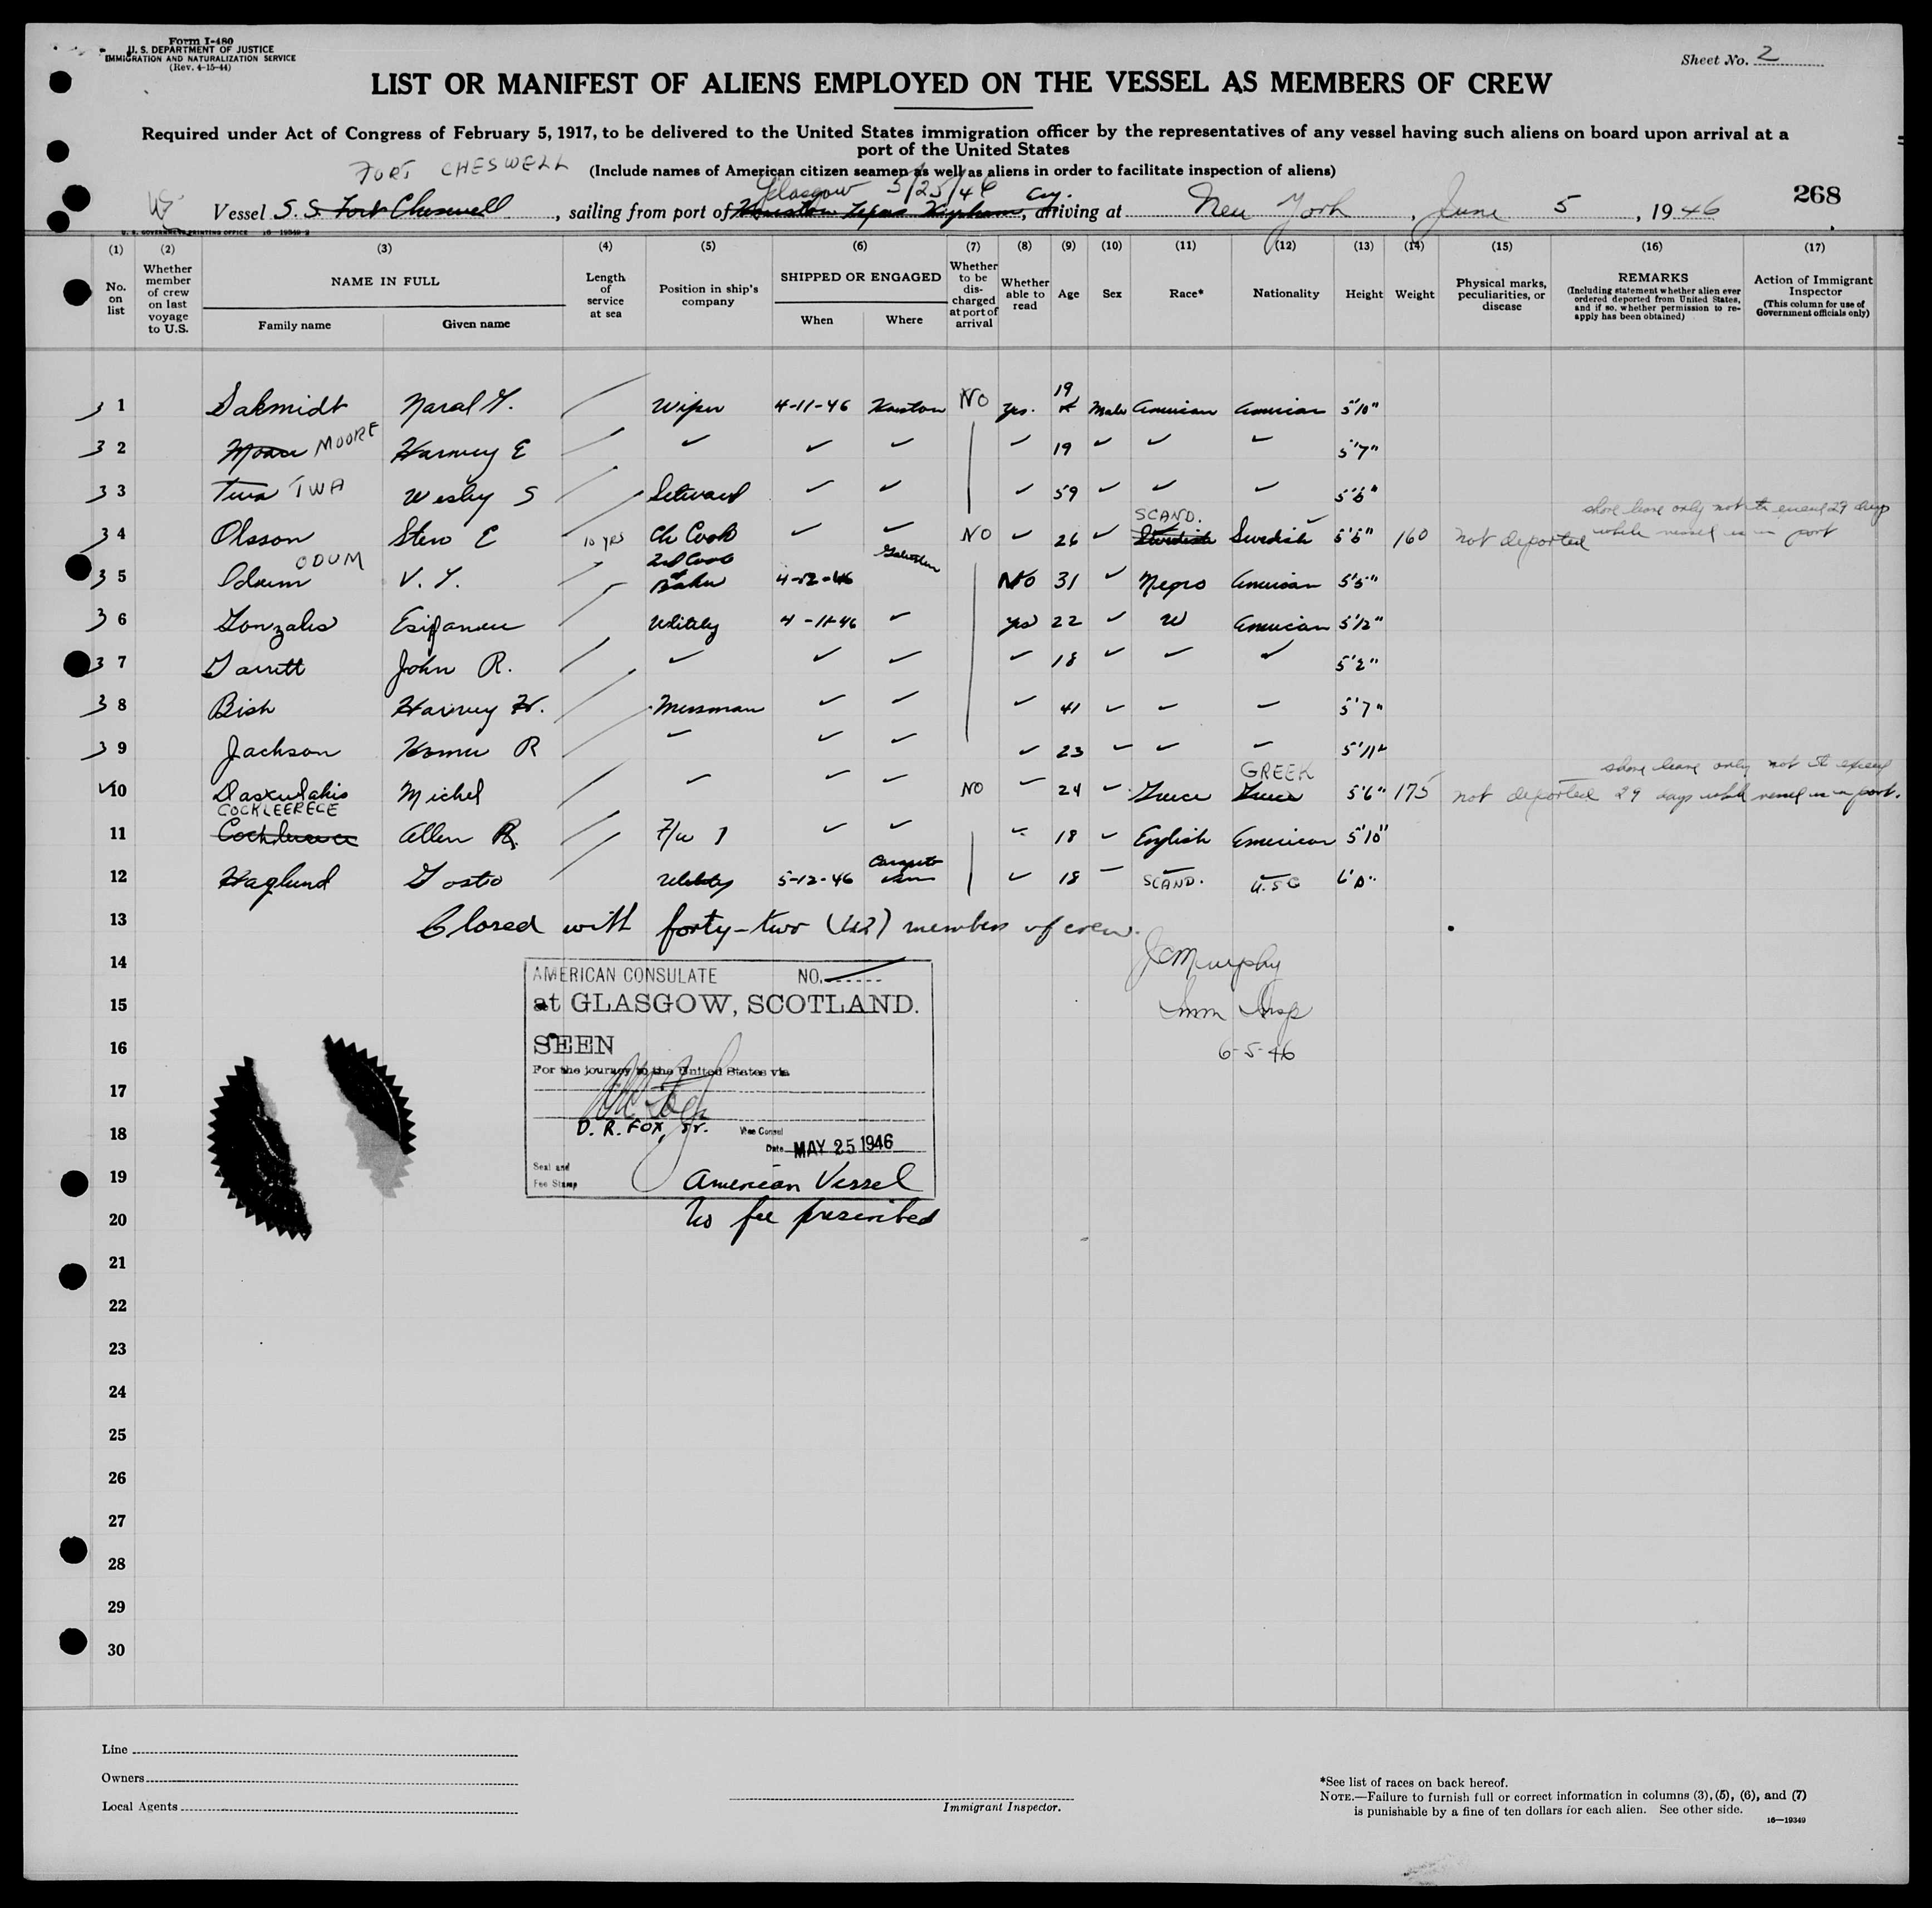 Form I-480
U. S. DEPARTMENT OF JUSTICE
IMMIGRATION AND NATURALIZATION SERVICE
(Rev. 4-15-44)
Sheet No. 2
LIST OR MANIFEST OF ALIENS EMPLOYED ON THE VESSEL AS MEMBERS OF CREW
Required under Act of Congress of February 5, 1917, to be delivered to the United States immigration officer by the representatives of any vessel having such aliens on board upon arrival at a
port of the United States
FORT CHESWELL (Include names of American citizen seamen as well as aliens in order to facilitate inspection of aliens)
Glasgow 5/25/46
268
Vessel S. S. Fort Cheswell, sailing from port of Houston Texas, arriving at New York, June 5, 1946
U. S. GOVERNMENT PRINTING OFFICE 16-19349-2
(1) (2) (3) (4) (5) (6) (7) (8) (9) (10) (11) (12) (13) (14) (15) (16) (17)
No. on list
Whether member of crew on last voyage to U.S.
NAME IN FULL
Family name
Given name
Length of service at sea
Position in ship's company
SHIPPED OR ENGAGED
When
Where
Whether to be discharged at port of arrival
Whether able to read
Age
Sex
Race*
Nationality
Height
Weight
Physical marks, peculiarities, or disease
REMARKS
(Including statement whether alien ever ordered deported from United States, and if so, whether permission to reapply has been obtained)
Action of Immigrant Inspector
(This column for use of Government officials only)
3 1 Naral Wiper 4-11-46 Houston NO yes. 19 Male American American 5'10"
3 2 Moore MOORE Harvey E ✓ ✓ ✓ ✓ 19 ✓ ✓ ✓ 5'7"
3 3 Twa TWA Wesley S Steward ✓ ✓ ✓ 59 ✓ ✓ ✓
shore leave only not to exceed 29 days
SCAND.
3 4 Olsson Sten E 10 yrs Ch Cook ✓ ✓ NO ✓ 26 ✓ Swedish Swedish 160 not deported while vessel is in port
ODUM
2nd Cook
Galveston
3 5 Odum V. Y. Baker 4-12-46 NO 31 ✓ Negro American 5'5"
3 6 Gonzales Utility 4-11-46 ✓ yes 22 ✓ W American
3 7 Garrett John R. ✓ ✓ ✓ ✓ 18 ✓ ✓ ✓ 5'2"
3 8 Bish Harvey Messman ✓ ✓ ✓ 41 ✓ ✓ ✓ 5'7"
3 9 Jackson Homer R ✓ ✓ ✓ ✓ 23 ✓ ✓ ✓ 5'11"
GREEK
shore leave only not to exceed
✓10 Daskulakis Michel ✓ ✓ ✓ NO ✓ 24 ✓ Greece Greece 5'6" 175 not deported 29 days while vessel is in port.
COCKLEERECE
11 Allen R. F/W ✓ ✓ ✓ 18 ✓ English American 5'10"
12 Haglund Gosto Utility 5-12-46 ✓ 18 SCAND. U.S.C
13 Closed with forty-two (42) members of crew.
14 J C Murphy
15 Imm Insp
16 6-5-46
17
18
19
20
21
22
23
24
25
26
27
28
29
30
AMERICAN CONSULATE NO.
at GLASGOW, SCOTLAND.
SEEN
For the journey to the United States via
D. R. FOX, Jr. Vice Consul
Date MAY 25 1946
Seal and
Fee Stamp
American Vessel
No fee prescribed
Line
Owners
Local Agents
Immigrant Inspector.
*See list of races on back hereof.
NOTE.—Failure to furnish full or correct information in columns (3), (5), (6), and (7)
is punishable by a fine of ten dollars for each alien. See other side.
16-19349